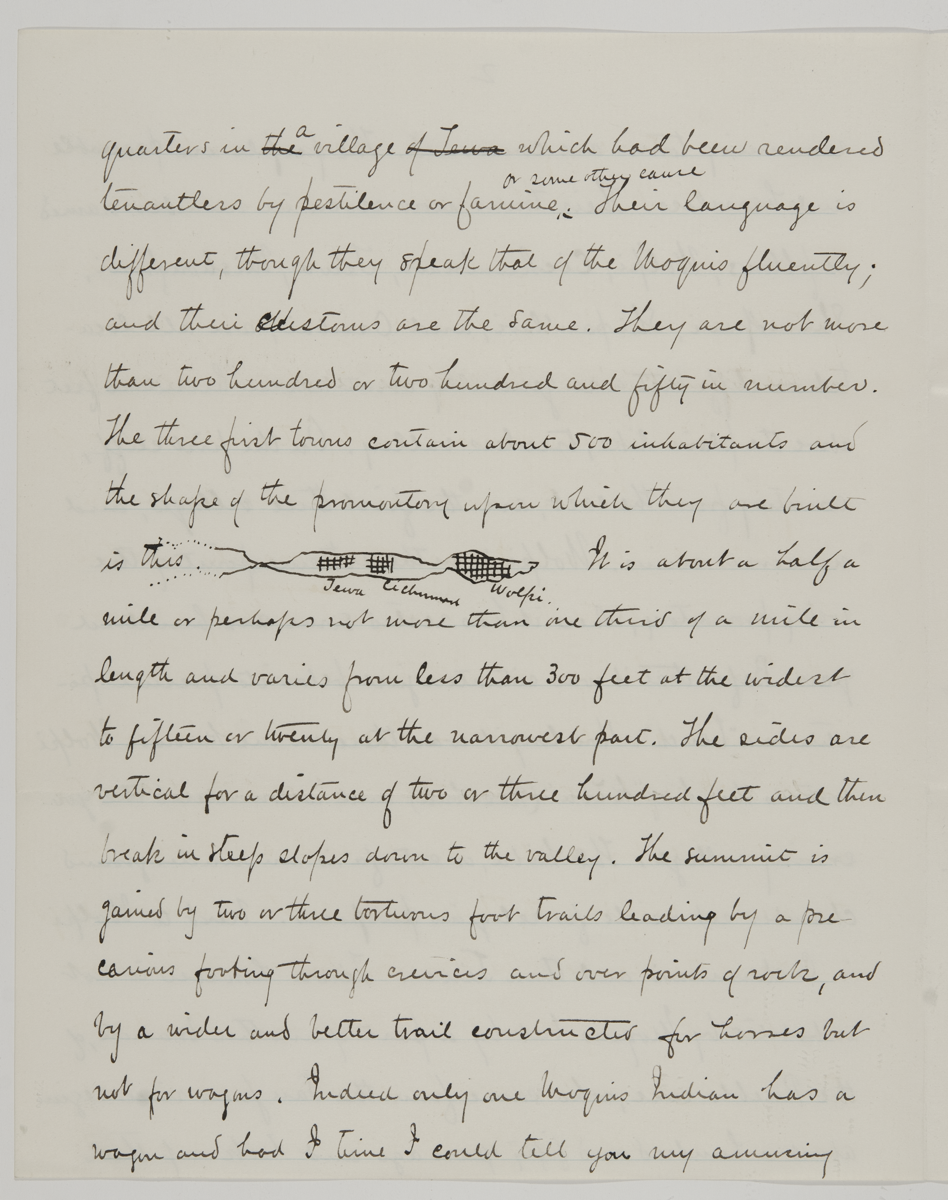 quarters in the a village of Tewa which had been rendered
or some other cause
tenantlers by pestilence or famine. Their language is
different, though they speak that of the Moquis fluently;
and their customs are the same. They are not more
than two hundred or two hundred and fifty in number.
The three first towns contain about 500 inhabitants and
the shape of the promontory upon which they are built
is this. It is about a half a
Tewa Cichumnavi Wolpi.
mile or perhaps not more than one third of a mile in
length and varies from less than 300 feet at the widest
to fifteen or twenty at the narrowest part. The sides are
vertical for a distance of two or three hundred feet and then
break in steep slopes down to the valley. The summit is
gained by two or three tortuous foot trails leading by a pre-
carious footing through crevices and over points of rock, and
by a wider and better trail constructed for horses but
not for wagons. Indeed only one Moquis Indian has a
wagon and had I time I could tell you my amusing